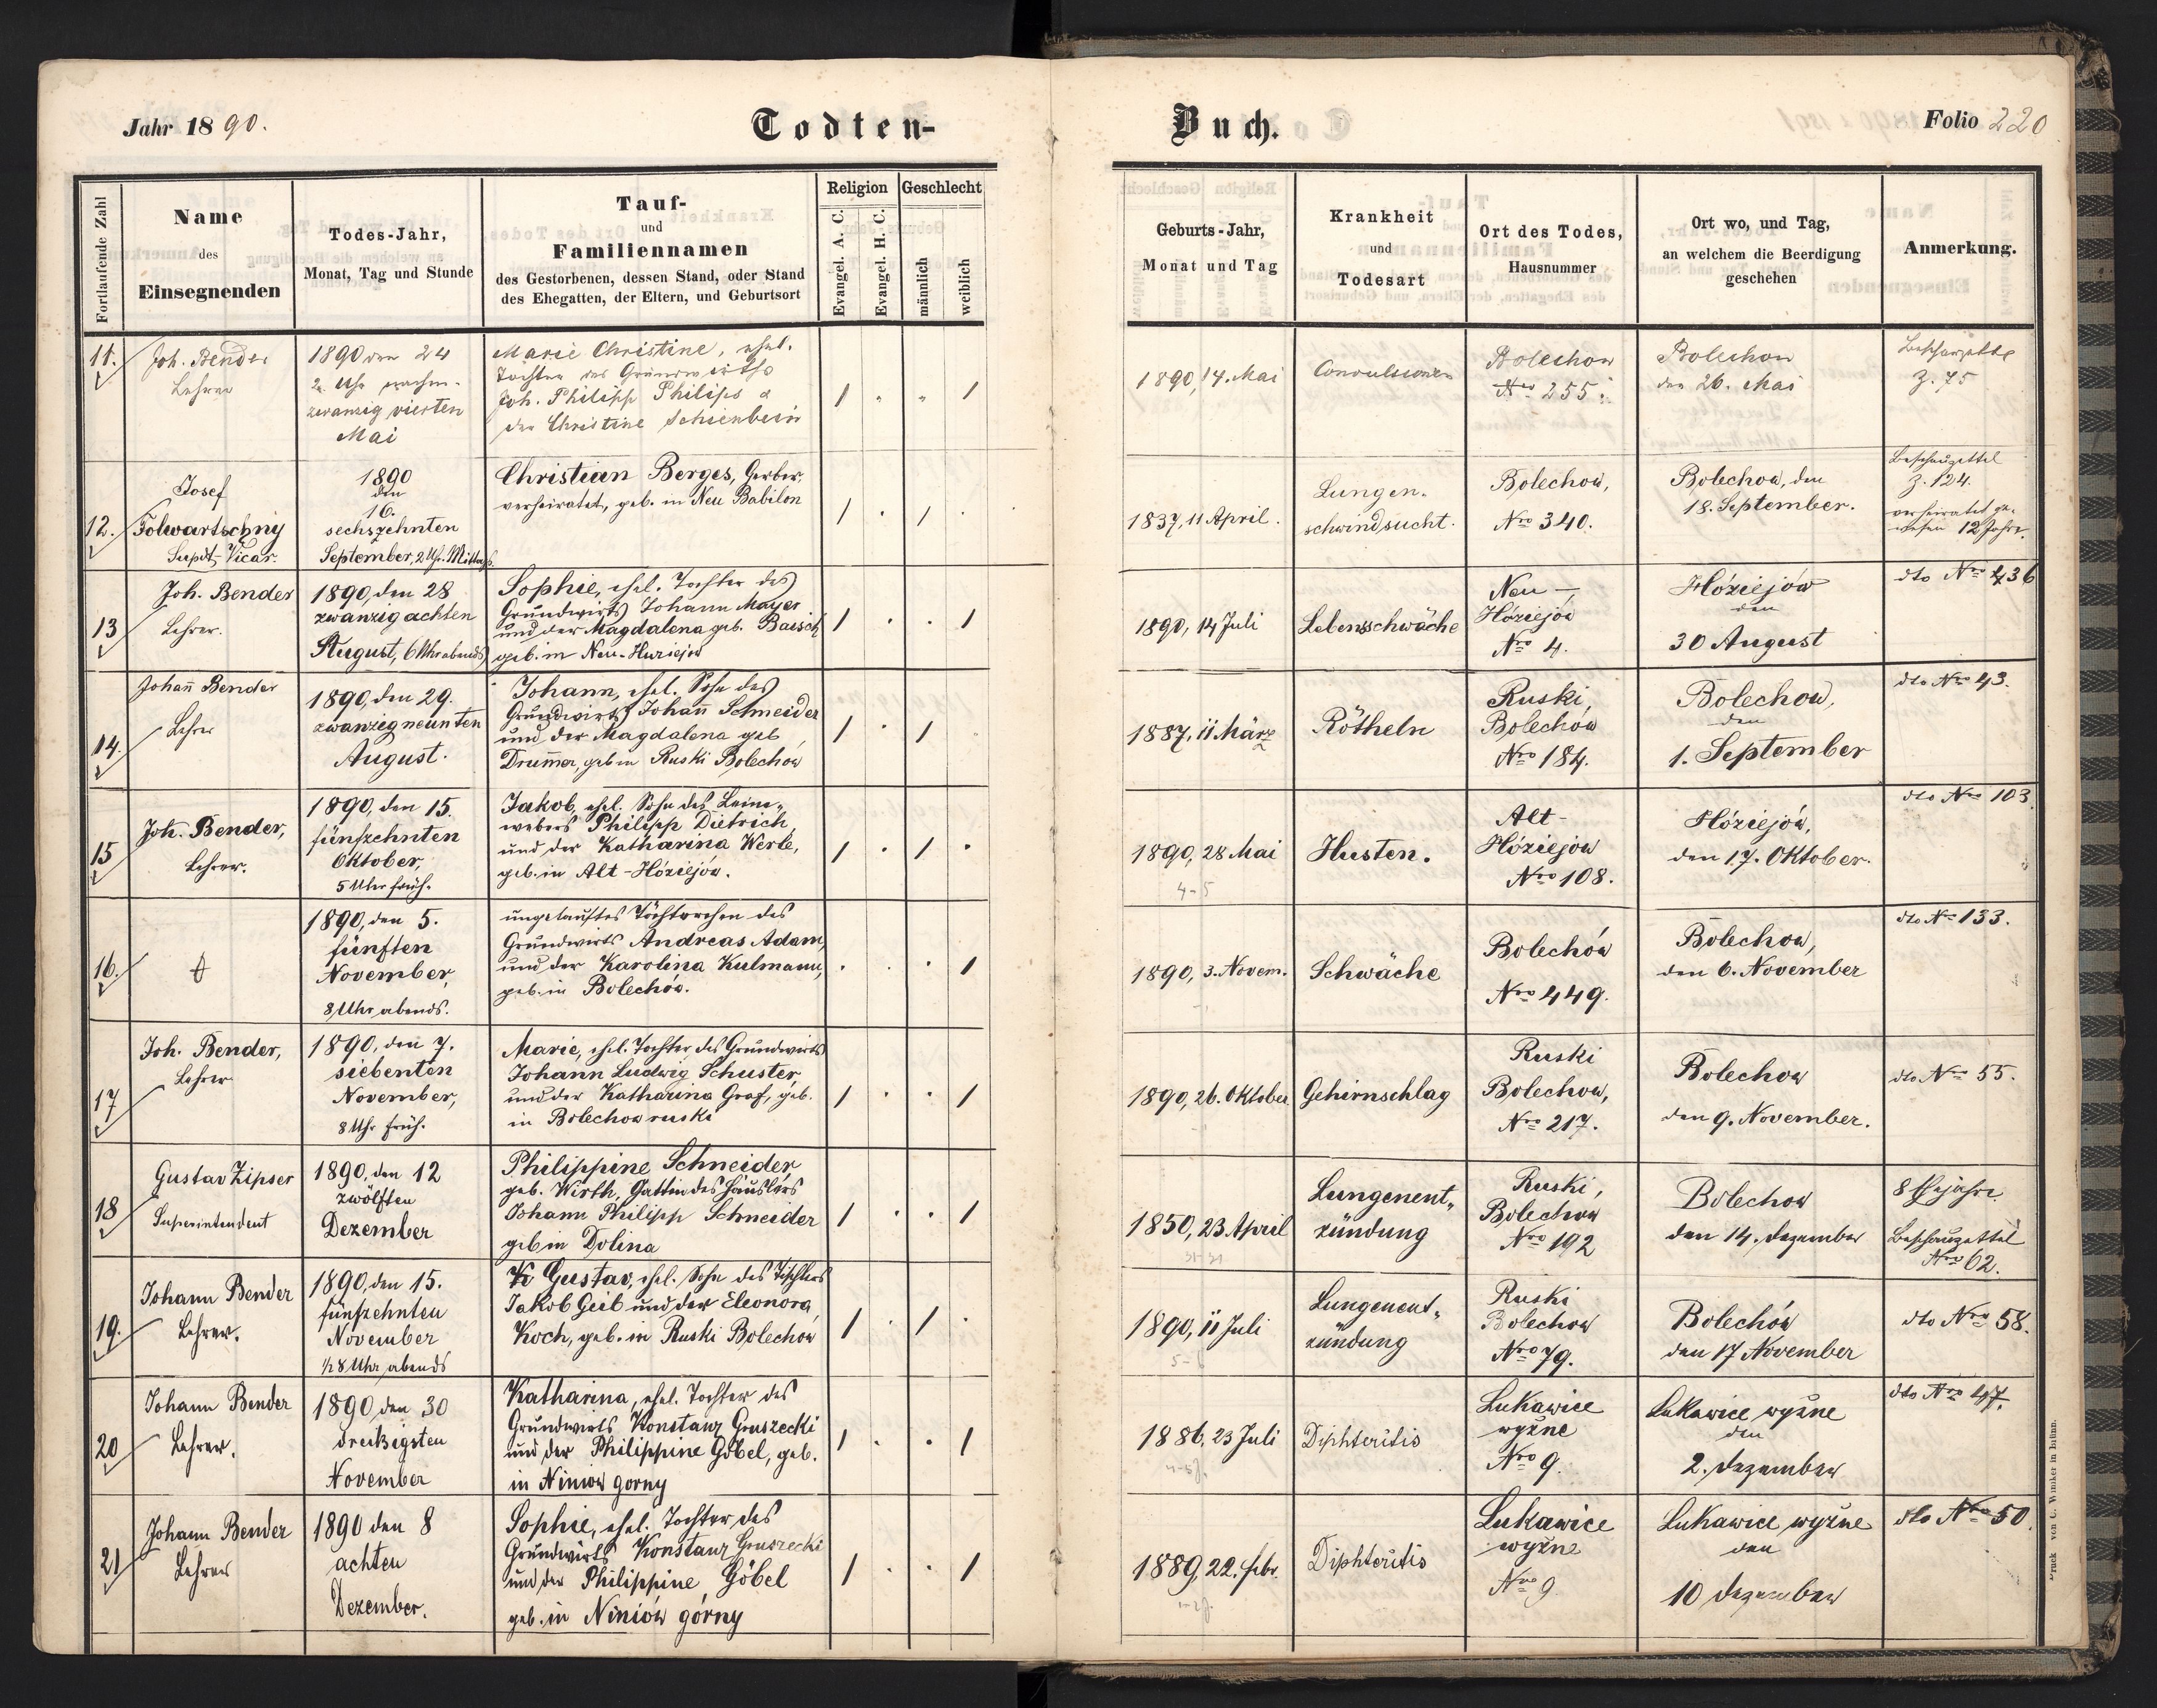 Jahr 1890.
Todten-
Buch.
Folio 220
Fortlaufende Zahl
Name
des
Einsegnenden
Todes-Jahr,
Monat, Tag und Stunde
Tauf-
und
Familiennamen
des Gestorbenen, dessen Stand, oder Stand
des Ehegatten, der Eltern, und Geburtsort
Religion
Evangel. A. C.
Evangel. H. C.
Geschlecht
männlich
weiblich
Geburts-Jahr,
Monat und Tag
Krankheit
und
Todesart
Ort des Todes,
Hausnummer
Ort wo, und Tag,
an welchem die Beerdigung
geschehen
Anmerkung.
11.
Joh. Bender
Lehrer
1890 den 24
2 Uhr nachm.
zwanzig vierten
Mai
Marie Christine, ehel.
Tochter des Grundwirths
Joh. Philipp Philips &
der Christine Schienbein
1890, 14. Mai
Convulsionen
Bolechow
Nro 255.
Bolechow
den 26. Mai
Beschauzettel
Z. 75
12.
Josef
Folwartschny
Supdt. Vicar.
1890
den
16.
sechszehnten
September, 2 Uhr Mittags.
Christian Berges, Gerber,
verheiratet, geb. in Neu Babilon
1837, 11 April.
Lungen-
schwindsucht.
Bolechow,
Nro 340.
Bolechow, den
18. September.
Beschauzettel
Z. 124.
verheiratet ge-
wesen 12 Jahre.
13
Joh. Bender
Lehrer.
1890, den 28
zwanzig achten
August, 6 Uhr abends
Sophie, ehel. Tochter des
Grundwirts Johann Mayer
und der Magdalena geb. Baisch
geb. in Neu-Huziejow
1890, 14 Juli
Lebensschwäche
Neu-
Hóziejów
Nro 4.
Hóziejów
den
30 August
dto Nro 436
14.
Johann Bender
Lehrer
1890, den 29.
zwanzigneunten
August.
Johann, ehel. Sohn des
Grundwirts Johann Schneider
und der Magdalena geb
Drummer, geb in Ruski Bolechów
1887, 11 März
Rötheln
Ruski,
Bolechów
Nro 184.
Bolechow,
den
1. September
dto Nro 43.
15
Joh. Bender,
Lehrer.
1890, den 15.
fünfzehnten
Oktober,
5 Uhr früh.
Jakob, ehel. Sohn des Leine-
webers Philipp Dietrich,
und der Katharina Werle,
geb. in Alt-Hóziejów.
1890, 28 Mai
4-5
Husten.
Alt-
Hóziejów
Nro 108.
Hóziejów,
den 17. Oktober.
dto Nro 103.
16.
1890, den 5.
fünften
November,
8 Uhr abends.
ungetauftes Töchterchen des
Grundwirts Andreas Adam,
und der Karolina Kulmann,
geb. in Bolechów.
1890, 3. Novem.
Schwäche
Bolechów
Nro 449.
Bolechow,
den 6. November
dto Nro 133.
17
Joh. Bender,
Lehrer
1890, den 7.
siebenten
November,
8 Uhr früh.
Marie, ehel. Tochter des Grundwirts
Johann Ludwig Schuster,
und der Katharina Graf, geb.
in Bolechow ruski
1890, 26. Oktober
Gehirnschlag
Ruski
Bolechow,
Nro 217.
Bolechow
den 9. November.
dto Nro 55.
18
Gustav Zipser
Superintendent
1890, den 12
zwölften
Dezember
Philippine Schneider,
geb. Wirth, Gattin des Häuslers
Johann Philipp Schneider
geb in Dolina
1850, 23 April
Lungenent-
zündung
Ruski,
Bolechow
Nro 192
Bolechow
den 14. Dezember
8 Ehejahre
Beschauzettel
Nro 62.
19.
Johann Bender
Lehrer.
1890, den 15.
fünfzehnten
November
1/2 8 Uhr abends
Gustav, ehel. Sohn des Tischlers
Jakob Geib und der Eleonora,
Koch, geb. in Ruski Bolechów
1890, 11 Juli
Lungenent-
zündung
Ruski
Bolechow
Nro 79.
Bolechów
den 17 November
dto Nro 58.
20
Johann Bender
Lehrer.
1890 den 30
dreißigsten
November
Katharina, ehel. Tochter des
Grundwirts Konstanz Gruszecki
und der Philippine Göbel, geb.
in Niniow gorny
1886, 23 Juli
Diphteritis
Lukawice
wyżne
Nro 9.
Lukawice wyżne
den
2. Dezember
dto Nro 47.
21
Johann Bender
Lehrer
1890 den 8
achten
Dezember.
Sophie, ehel. Tochter des
Grundwirts Konstanz Gruszecki
und der Philippine Göbel
geb. in Niniów górny
1889, 22. Febr.
Diphteritis
Lukawice
wyżne
Nro 9
Lukawice wyżne
den
10 Dezember
dto Nro 50.
Druck von C. Winiker in Brünn.